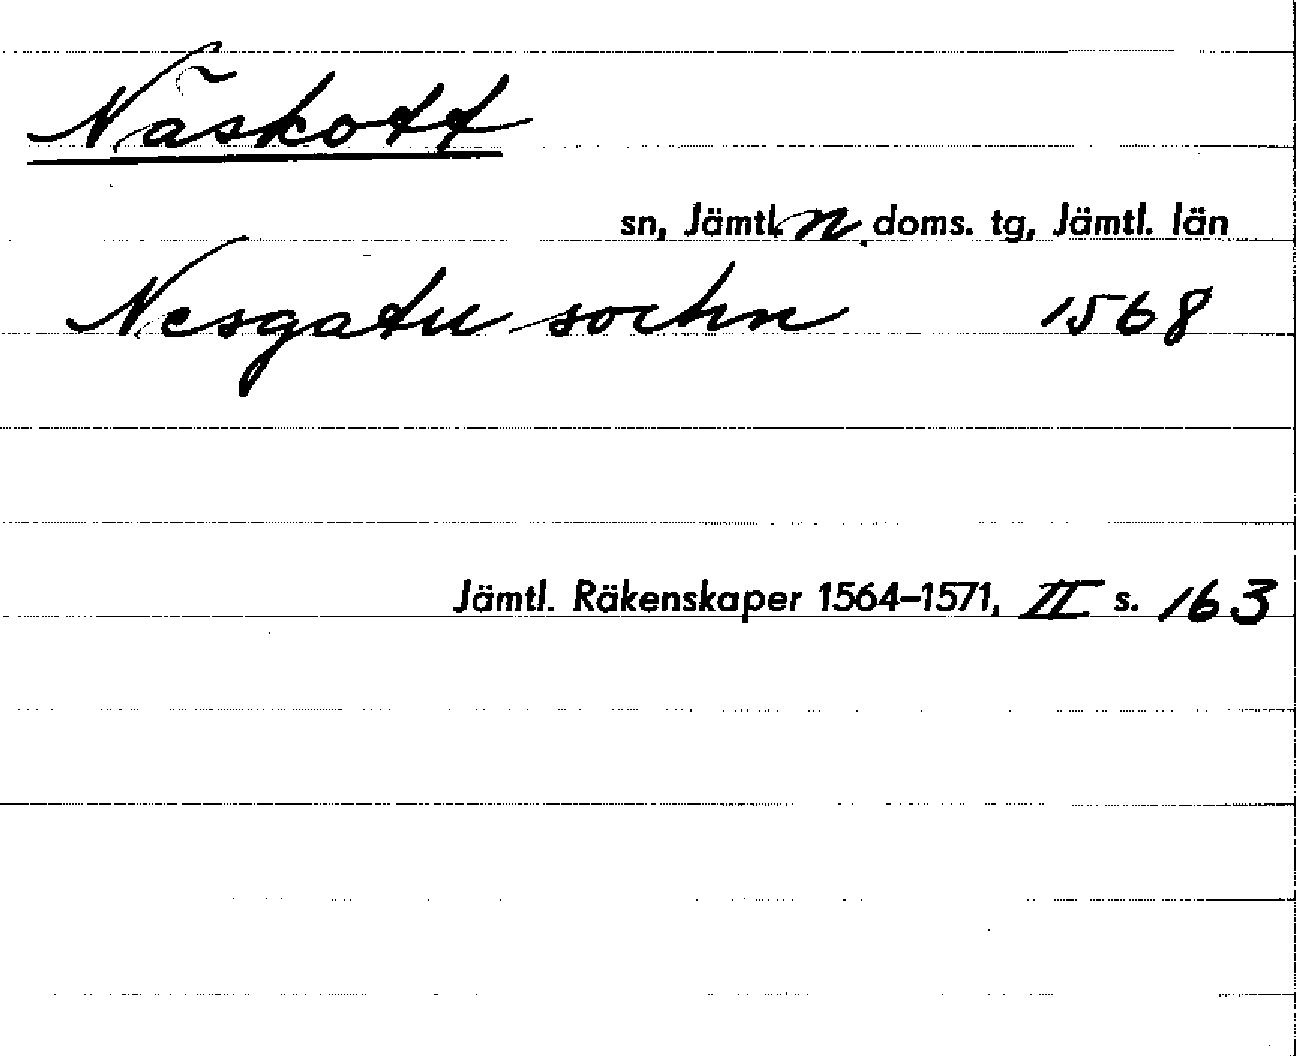 Näskott
sn, Jämtl. n. doms. tg, Jämtl. län
Nesgatu sochn 1568
Jämtl. Räkenskaper 1564–1571, II s. 163